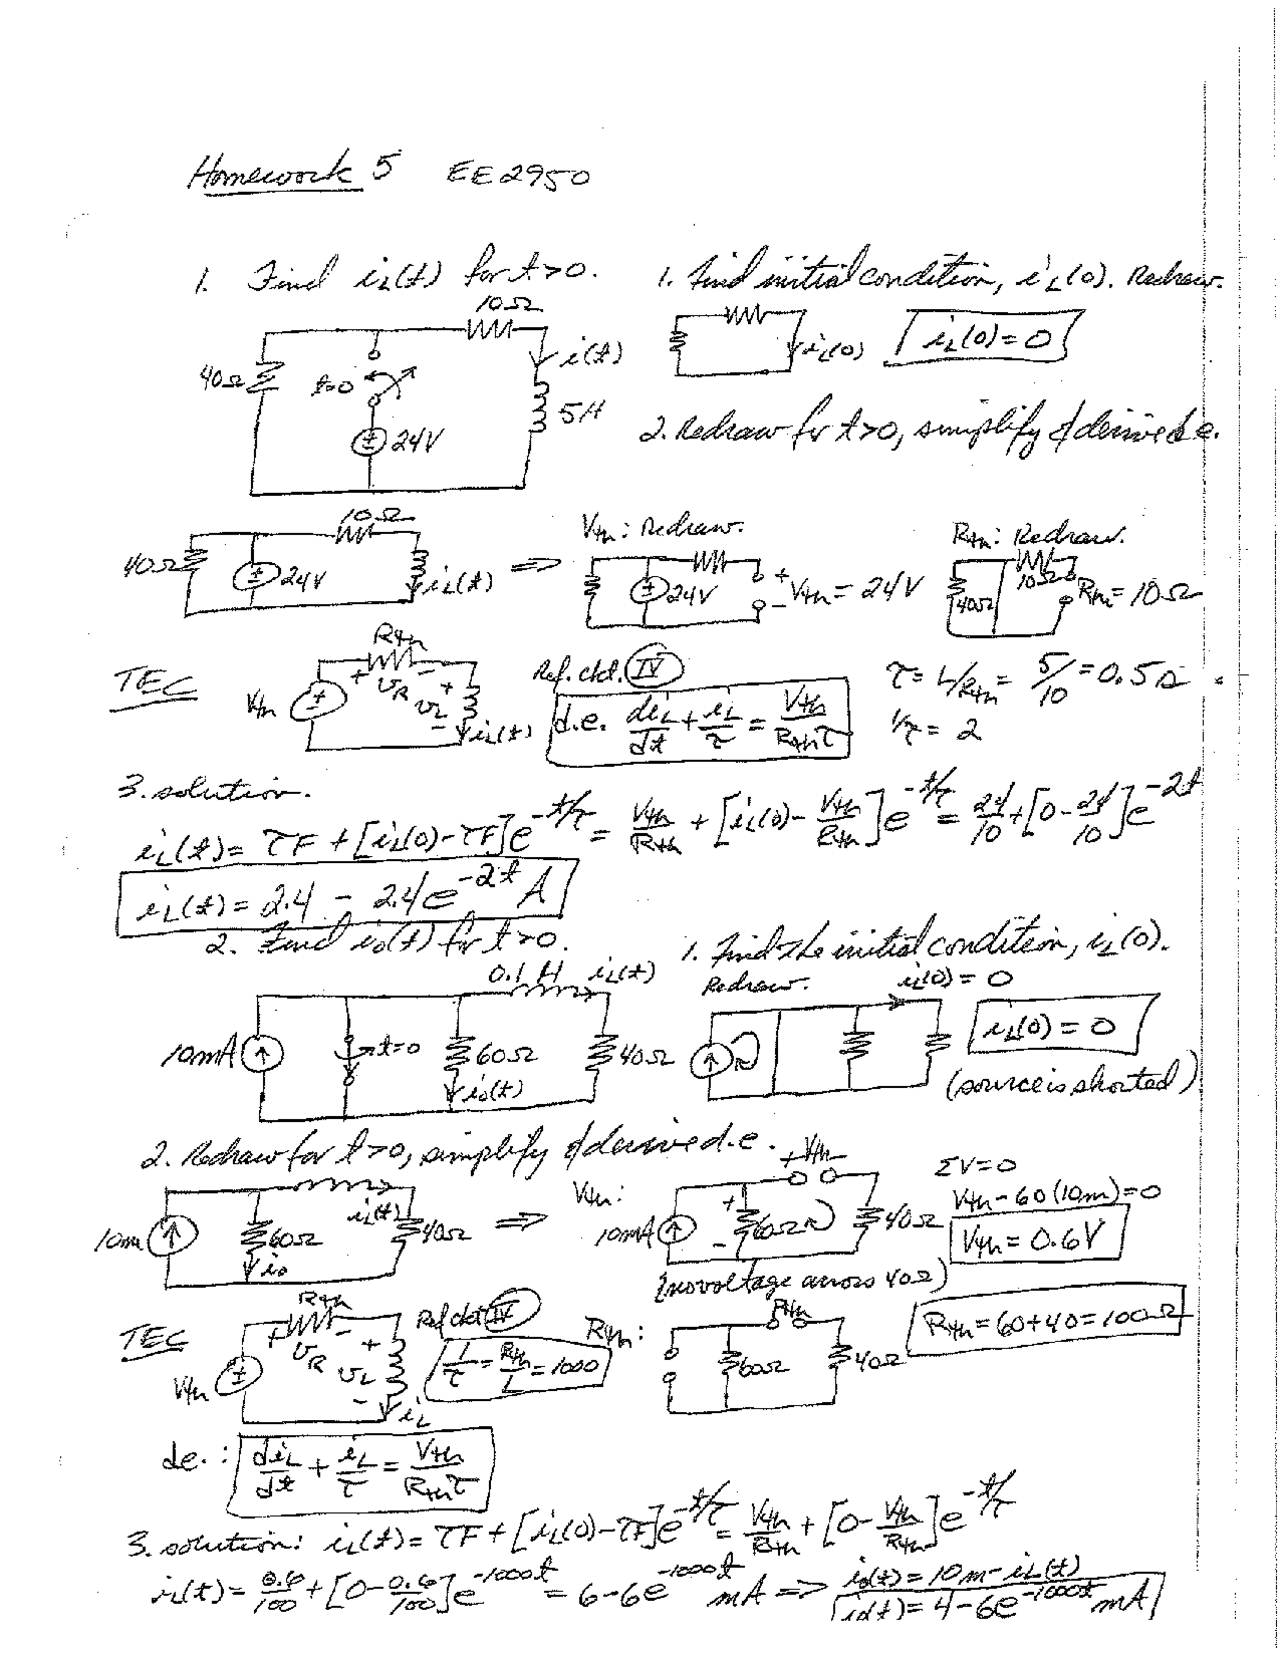 Homework 5 EE2950
1. Find i_L(t) for t>0.
10Ω
40Ω
t=0
i(t)
5H
24V
1. Find initial condition, i_L(0). Redraw.
i_L(0)
i_L(0)=0
2. Redraw for t>0, simplify & derive d.e.
10Ω
40Ω
24V
i_L(t)
⇒
V_th: Redraw.
24V
+
V_th = 24V
-
R_th: Redraw.
10Ω
40Ω
R_th = 10Ω
TEC
R_th
+ v_R -
V_th
+
v_L
-
i_L(t)
Ref. ckt. IV
d.e. di_L/dt + i_L/τ = V_th/(R_th τ)
τ = L/R_th = 5/10 = 0.5s
1/τ = 2
3. solution.
i_L(t) = τF + [i_L(0) - τF]e^(-t/τ) = V_th/R_th + [i_L(0) - V_th/R_th]e^(-t/τ) = 24/10 + [0 - 24/10]e^(-2t)
i_L(t) = 2.4 - 2.4e^(-2t) A
2. Find i_o(t) for t>0.
0.1 H i_L(t)
10mA
t=0
60Ω
40Ω
i_o(t)
1. Find the initial condition, i_L(0).
Redraw.
i_L(0) = 0
i_L(0) = 0
(source is shorted)
2. Redraw for t>0, simplify & derive d.e.
10m
60Ω
i_o
i_L(t)
40Ω
⇒
V_th:
+ V_th -
10mA
+
60Ω
-
40Ω
(no voltage across 40Ω)
ΣV=0
V_th - 60(10m) = 0
V_th = 0.6V
TEC
R_th
+ v_R -
V_th
+
v_L
-
i_L
Ref ckt IV
1/τ = R_th/L = 1000
R_th:
R_th
60Ω
40Ω
R_th = 60+40 = 100Ω
de.: di_L/dt + i_L/τ = V_th/(R_th τ)
3. solution: i_L(t) = τF + [i_L(0) - τF]e^(-t/τ) = V_th/R_th + [0 - V_th/R_th]e^(-t/τ)
i_L(t) = 0.6/100 + [0 - 0.6/100]e^(-1000t) = 6 - 6e^(-1000t) mA ⇒ i_o(t) = 10m - i_L(t)
i_o(t) = 4 - 6e^(-1000t) mA